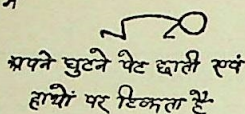 अपने घुटने पेट छाती एवं
हाथों पर टिकता है